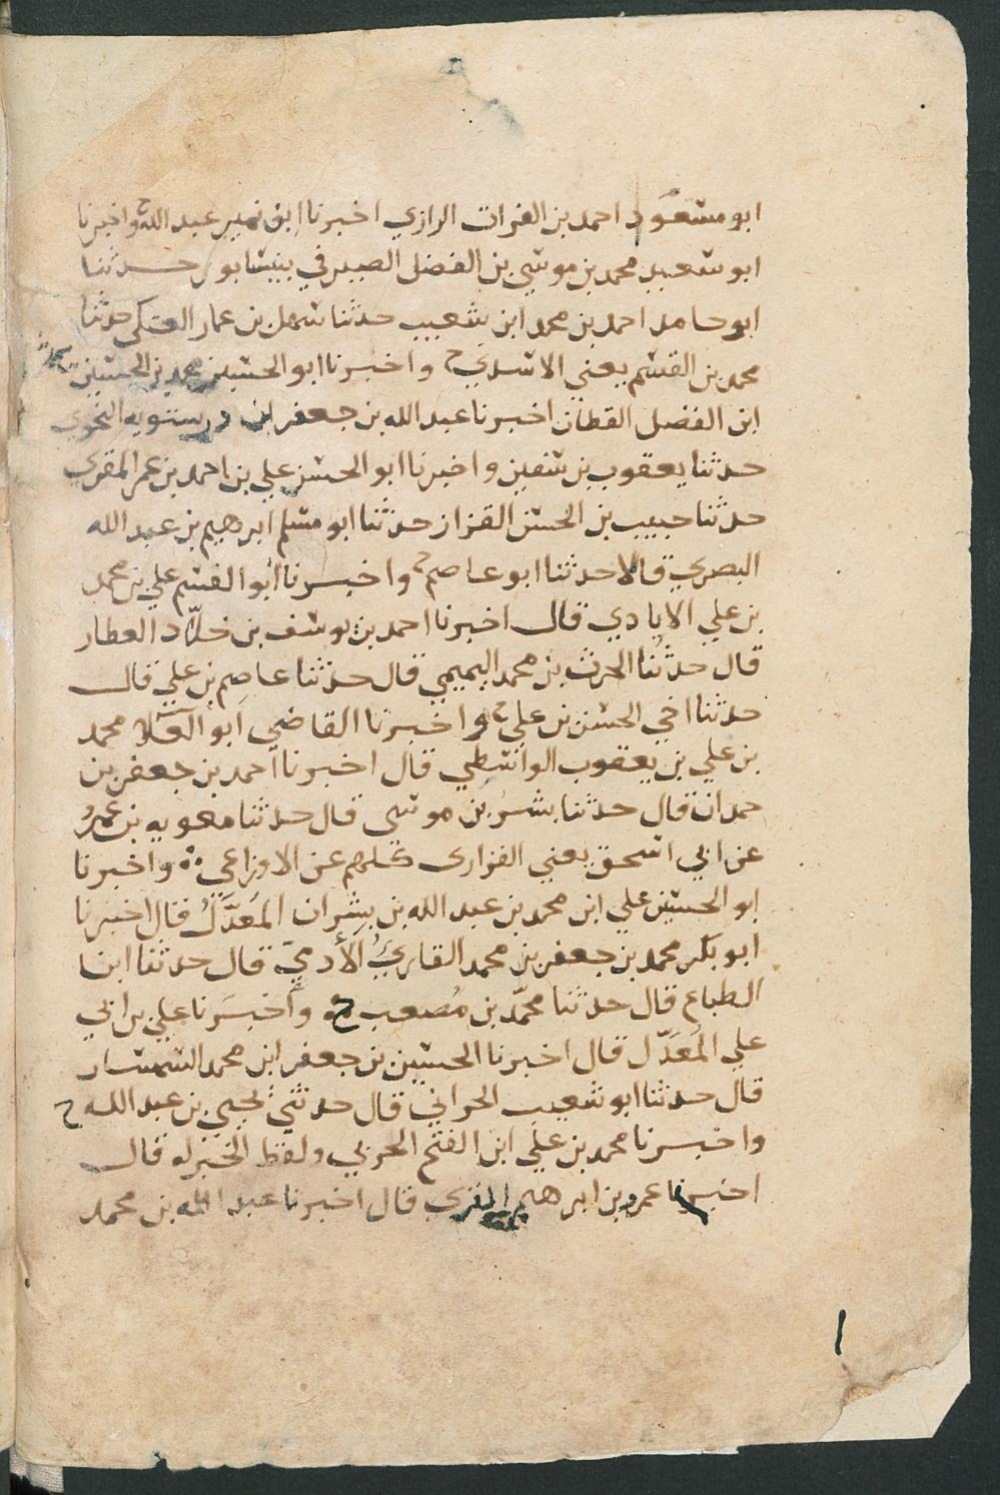 ابو مسعود احمد بن الفرات الرازي اخبرنا ابن نمير عبد الله ح واخبرنا
ابو سعيد محمد بن موسى بن الفضل الصيرفي بنيسابور حدثنا
ابو حامد احمد بن محمد ابن شعيب حدثنا سهل بن عمار العتكي حدثنا
محمد بن القسم يعني الاسدي ح واخبرنا ابو الحسين محمد بن الحسين
ابن الفضل القطان اخبرنا عبد الله بن جعفر ابن درستويه النحوي
حدثنا يعقوب بن سفين واخبرنا ابو الحسن علي بن احمد بن عمر المقري
حدثنا حبيب بن الحسن القزاز حدثنا ابو مسلم ابرهيم بن عبد الله
البصري قالا حدثنا ابو عاصم ح واخبرنا ابو القسم علي بن محمد
بن علي الايادي قال اخبرنا احمد بن يوسف بن خلّاد العطار
قال حدثنا الحرث بن محمد التميمي قال حدثنا عاصم بن علي قال
حدثنا اخي الحسن بن علي ح واخبرنا القاضي ابو العلا محمد
بن علي بن يعقوب الواسطي قال اخبرنا احمد بن جعفر بن
حمدان قال حدثنا بشر بن موسى قال حدثنا معويه بن عمرو
عن ابي اسحق يعني الفزاري كلهم عن الاوزاعي واخبرنا
ابو الحسين علي ابن محمد بن عبد الله بن بشران المعَدَّلُ قال اخبرنا
ابو بكر محمد بن جعفر بن محمد القاريُ الأدميّ قال حدثنا ابن
الطباع قال حدثنا محمّد بن مُصعب ح واخبرنا علي بن ابي
علي المُعَدّل قال اخبرنا الحسين بن جعفر ابن محمد السمسار
قال حدثنا ابو شعيب الحراني قال حدثني يحيى بن عبد الله ح
واخبرنا محمد بن علي ابن الفتح الحربي ولفظ الخبر له قال
اخبرنا عمر بن ابرهيم المقري قال اخبرنا عبد الله بن محمد
١